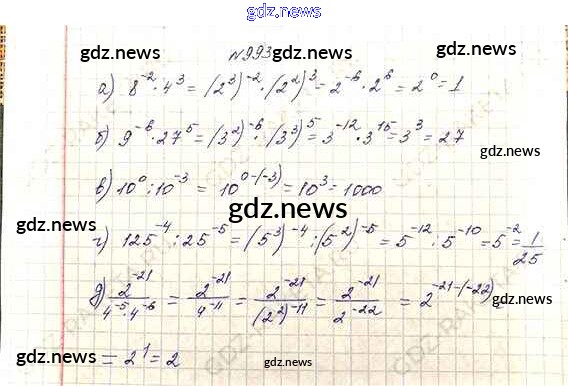 gdz.news
№993
gdz.news gdz.news gdz.news
а) 8⁻²·4³ = (2³)⁻²·(2²)³ = 2⁻⁶·2⁶ = 2⁰ = 1
б) 9⁻⁶·27⁵ = (3²)⁻⁶·(3³)⁵ = 3⁻¹²·3¹⁵ = 3³ = 27
gdz.news
в) 10⁰:10⁻³ = 10⁰⁻⁽⁻³⁾ = 10³ = 1000
gdz.news
gdz.news
г) 125⁻⁴:25⁻⁵ = (5³)⁻⁴:(5²)⁻⁵ = 5⁻¹²:5⁻¹⁰ = 5⁻² = 1/25
gdz.news
д) 2⁻²¹/4⁻⁵·4⁻⁶ = 2⁻²¹/4⁻¹¹ = 2⁻²¹/(2²)⁻¹¹ = 2⁻²¹/2⁻²² = 2⁻²¹⁻⁽⁻²²⁾ =
= 2¹ = 2
gdz.news gdz.news gdz.news